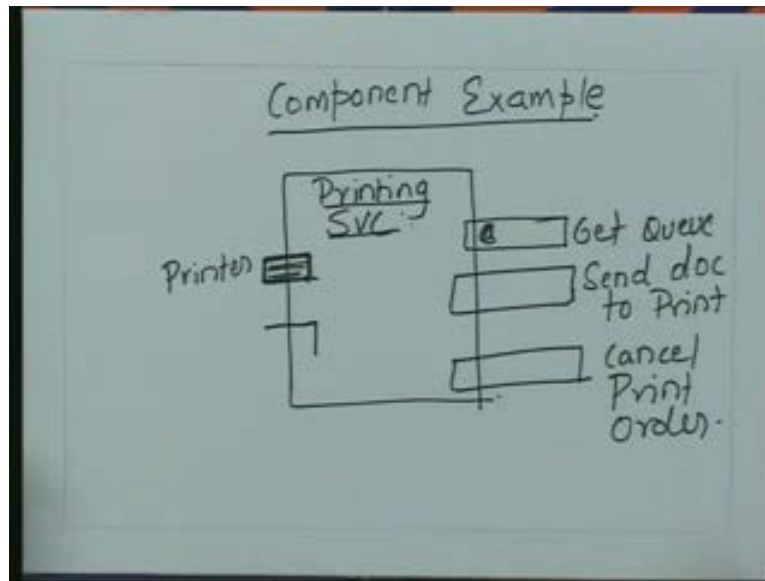 Component Example
Printing
SVC.
Printer
Get Queue
Send doc
to Print
Cancel
Print
Order.